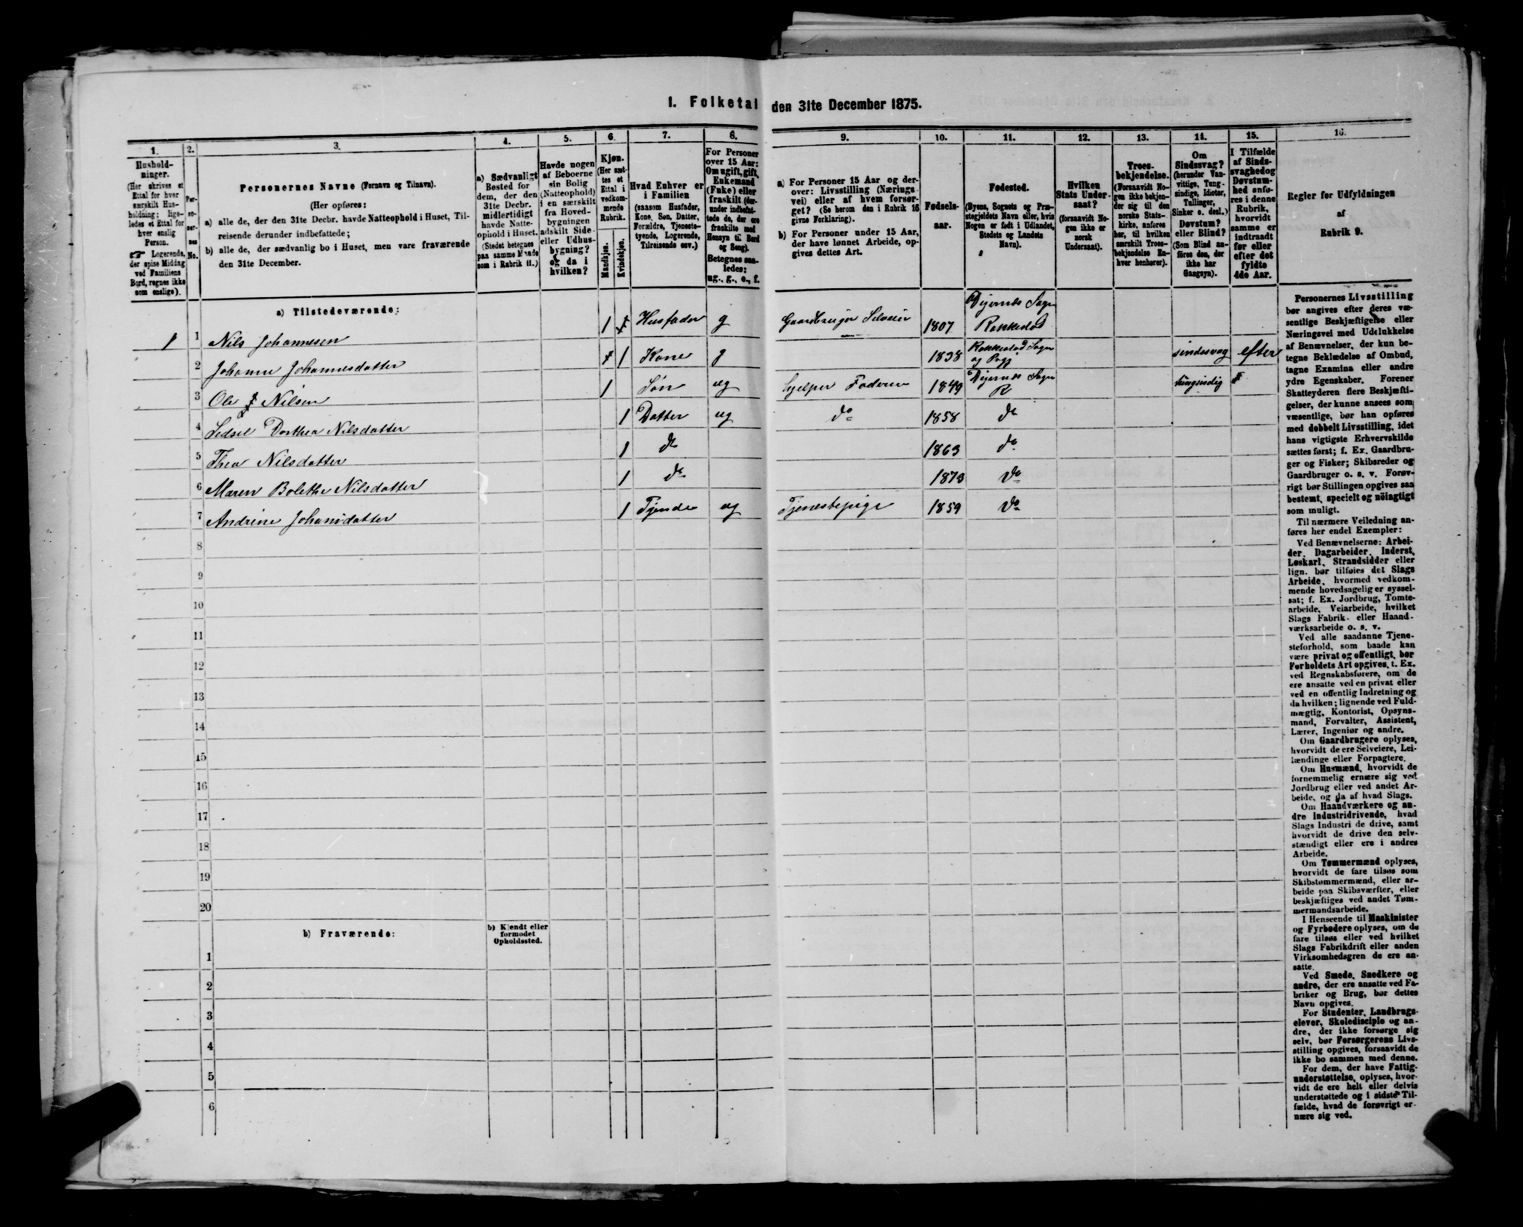 1. Folketal den 31te December 1875.
1.
Hushold-
ninger.
(Her skrives et
Ettal for hver
særskilt Hus-
holdning; lige-
ledes et Ettal for
hver enslig
Person.
Logerende,
der spise Middag
ved Familiens
Bord, regnes ikke
som enslige).
2.
Per-
so-
ner-
nes
No.
3.
Personernes Navne (Fornavn og Tilnavn).
(Her opføres:
a) alle de, der den 31te Decbr. havde Natteophold i Huset, Til-
reisende derunder indbefattede;
b) alle de, der sædvanlig bo i Huset, men vare fraværende
den 31te December.
4.
a) Sædvanligt
Bosted for
dem, der den
31te Decbr.
midlertidigt
havde Natte-
ophold i Huset.
(Stedet betegnes
paa samme Maade
som i Rubrik 11.)
5.
Havde nogen
af Beboerne
sin Bolig
(Natteophold)
i en særskilt
fra Hoved-
bygningen
adskilt Side-
eller Udhus-
bygning?
og da i
hvilken?
6.
Kjøn.
(Her sæt-
tes et
Ettal i
vedkom-
mende
Rubrik.
Mandkjøn.
Kvindekjøn.
7.
Hvad Enhver er
i Familien
(saasom Husfader,
Kone, Søn, Datter,
Forældre, Tjeneste-
tyende, Logerende,
Tilreisende osv.)
8.
For Personer
over 15 Aar:
Om ugift, gift,
Enkemand
(Enke) eller
fraskilt (der-
under indbefat-
tede de, der ere
fraskilte med
Hensyn til Bord
og Seng).
Betegnes saa-
ledes:
ug., g., e., f.
9.
a) For Personer 15 Aar og der-
over: Livsstilling (Nærings-
vei) eller af hvem forsør-
get? (Se herom den i Rubrik 16
givne Forklaring).
b) For Personer under 15 Aar,
der have lønnet Arbeide, op-
gives dettes Art.
10.
Fødsels-
aar.
11.
Fødested.
(Byens, Sognets og Præ-
stegjeldets Navn eller, hvis
Nogen er født i Udlandet,
Stedets og Landets
Navn).
12.
Hvilken
Stats Under-
saat?
(forsaavidt No-
gen ikke er
norsk
Undersaat).
13.
Troes-
bekjendelse.
(Forsaavidt No-
gen ikke bekjen-
der sig til den
norske Stats-
kirke, anføres
her, til hvilken
særskilt Troes-
bekjendelse En-
hver henhører).
14.
Om
Sindssvag?
(herunder Van-
vittige, Tung-
sindige, Idioter,
Tullinger,
Sinker o. desl.)
Døvstum?
eller Blind?
(Som Blind an-
føres den, der
ikke har
Gangsyn).
15.
I Tilfælde
af Sinds-
svaghed og
Døvstum-
hed anfø-
res i denne
Rubrik,
hvorvidt
samme er
indtraadt
før eller
efter det
fyldte
4de Aar.
16.
Regler for Udfyldningen
af
Rubrik 9.
a) Tilstedeværende:
1 1 Nils Johannesen 1 Husfader g Gaardbruger Selveier 1807 Rakkestad
2 Johanne Johannesdatter 1 Kone g 1838 Rakkestad Sogn og Præg sindssvag efter
3 Ole Nilsen 1 Søn ug hjelper Faderen 1849 tungsindig
4 Dorthea Nilsdatter 1 Datter ug do 1858 do
5 Thea Nilsdatter 1 do 1863 do
6 Maren Bolethe Nilsdatter 1 do 1873 do
7 Andrine Johansdatter 1 Tjende ug Tjenestepige 1859 do
8
9
10
11
12
13
14
15
16
17
18
19
20
b) Fraværende:
b) Kjendt eller
formodet
Opholdssted.
1
2
3
4
5
6
Personernes Livsstilling
bør angives efter deres væ-
sentlige Beskjæftigelse eller
Næringsvei med Udelukkelse
af Benævnelser, der kun be-
tegne Beklædelse af Ombud,
tagne Examina eller andre
ydre Egenskaber. Forener
Skatteyderen flere Beskjæfti-
gelser, der kunne ansees som
væsentlige, bør han opføres
med dobbelt Livsstilling, idet
hans vigtigste Erhvervskilde
sættes først; f. Ex. Gaardbru-
ger og Fisker; Skibsreder og
Gaardbruger o. s. v. Forøv-
rigt bør Stillingen opgives saa
bestemt, specielt og nøiagtigt
som muligt.
Til nærmere Veiledning an-
føres her endel Exempler:
Ved Benævnelserne: Arbei-
der, Dagarbeider, Inderst,
Løskarl, Strandsidder eller
lign. bør tilføies det Slags
Arbeide, hvormed vedkom-
mende hovedsagelig er syssel-
sat; f. Ex. Jordbrug, Tomte-
arbeide, Veiarbeide, hvilket
Slags Fabrik- eller Haand-
værksarbeide o. s. v.
Ved alle saadanne Tjene-
steforhold, som baade kan
være privat og offentligt, bør
Forholdets Art opgives, t. Ex.
ved Regnskabsførere, om de
ere ansatte ved en privat eller
ved en offentlig Indretning og
da hvilken; lignende ved Fuld-
mægtig, Kontorist, Opsyns-
mand, Forvalter, Assistent,
Lærer, Ingeniør og andre.
Om Gaardbrugere oplyses,
hvorvidt de ere Selveiere, Lei-
lændinge eller Forpagtere.
Om Husmænd, hvorvidt de
fornemmelig ernære sig ved
Jordbrug eller ved andet Ar-
beide, og da af hvad Slags.
Om Haandværkere og an-
dre Industridrivende, hvad
Slags Industri de drive, samt
hvorvidt de drive den selv-
stændigt eller ere i andres
Arbeide.
Om Tømmermænd oplyses,
hvorvidt de fare tilsøs som
Skibstømmermænd, eller ar-
beide paa Skibsværfter, eller
beskjæftiges ved andet Tøm-
mermandsarbeide.
I Henseende til Maskinister
og Fyrbødere oplyses, om de
fare tilsøs eller ved hvilket
Slags Fabrikdrift eller anden
Virksomhedsgren de ere an-
satte.
Ved Smede, Snedkere og
andre, der ere ansatte ved Fa-
briker og Brug, bør dettes
Navn opgives.
For Studenter, Landbrugs-
elever, Skoledisciple og an-
dre, der ikke forsørge sig
selv, bør Forsørgerens Livs-
stilling opgives, forsaavidt de
ikke bo sammen med denne.
For dem, der have Fattig-
understøttelse, oplyses, hvor-
vidt de ere helt eller delvis
understøttede og i sidste Til-
fælde, hvad de forøvrigt er-
nære sig ved.